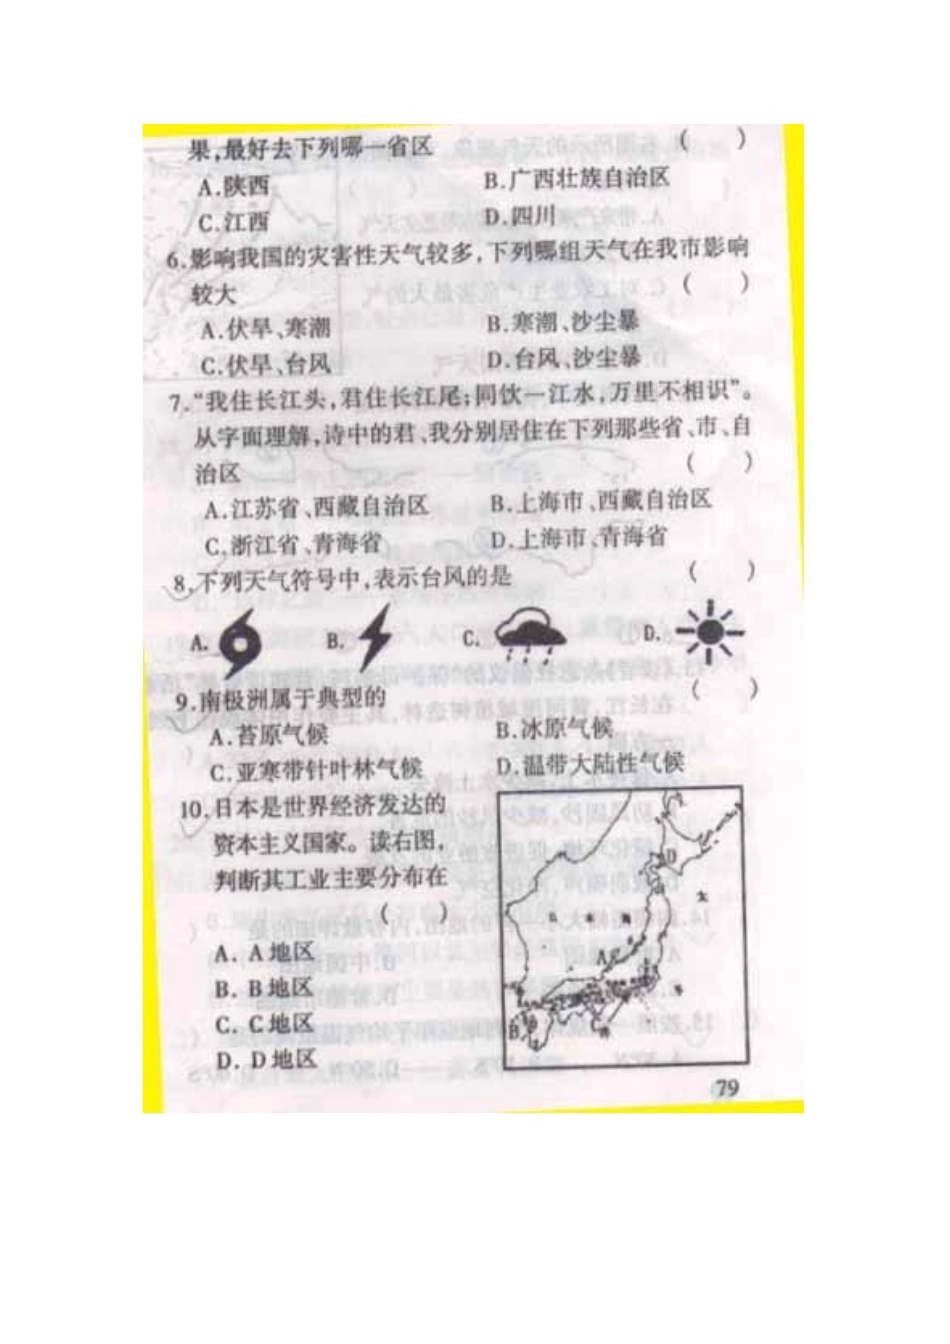 果,最好去下列哪一省区 ( )
A.陕西 B.广西壮族自治区
C.江西 D.四川
6.影响我国的灾害性天气较多,下列哪组天气在我市影响
较大 ( )
A.伏旱、寒潮 B.寒潮、沙尘暴
C.伏旱、台风 D.台风、沙尘暴
7.“我住长江头,君住长江尾;同饮一江水,万里不相识”。
从字面理解,诗中的君、我分别居住在下列那些省、市、自
治区 ( )
A.江苏省、西藏自治区 B.上海市、西藏自治区
C.浙江省、青海省 D.上海市、青海省
8.下列天气符号中,表示台风的是 ( )
A. B. C. D.
9.南极洲属于典型的 ( )
A.苔原气候 B.冰原气候
C.亚寒带针叶林气候 D.温带大陆性气候
10.日本是世界经济发达的
资本主义国家。读右图,
判断其工业主要分布在
( )
A. A地区
B. B地区
C. C地区
D. D地区
D
太
A
B
79